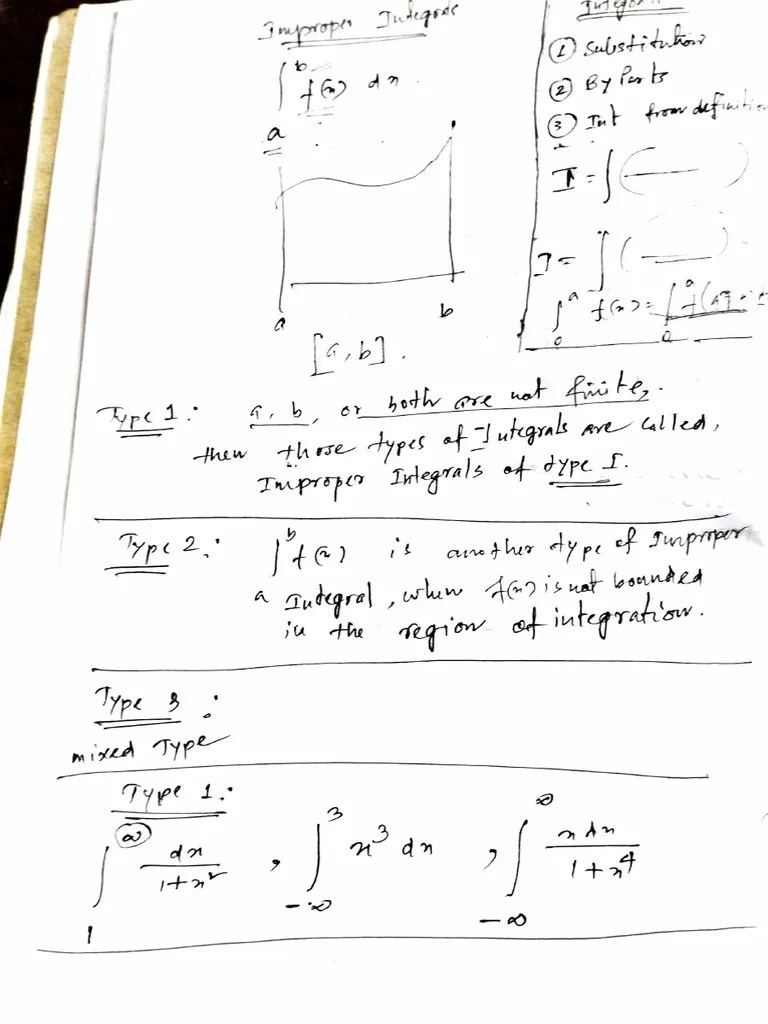 Improper Integrals
∫_a^b f(x) dx.
a b
[a, b].
① Substitution
② By Parts
③ Int from definition
I = ∫( — )
I = ∫( — )
∫_0^a f(x) = ∫_0^a f(a
Type 1: a, b, or both are not finite,
then those types of Integrals are called,
Improper Integrals of type I.
Type 2: ∫_a^b f(x) is another type of Improper
Integral, when f(x) is not bounded
in the region of integration.
Type 3:
mixed Type
Type 1:
∫_1^∞ dx/(1+x²) , ∫_{-∞}^3 x³ dx , ∫_{-∞}^∞ x dx/(1+x⁴)